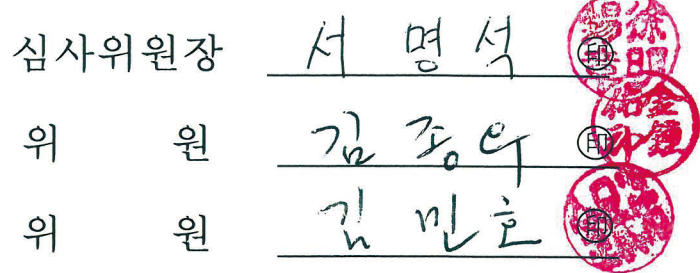 심사위원장 서 명 석 ㊞
위 원 김 종 우 ㊞
위 원 김 민 호 ㊞